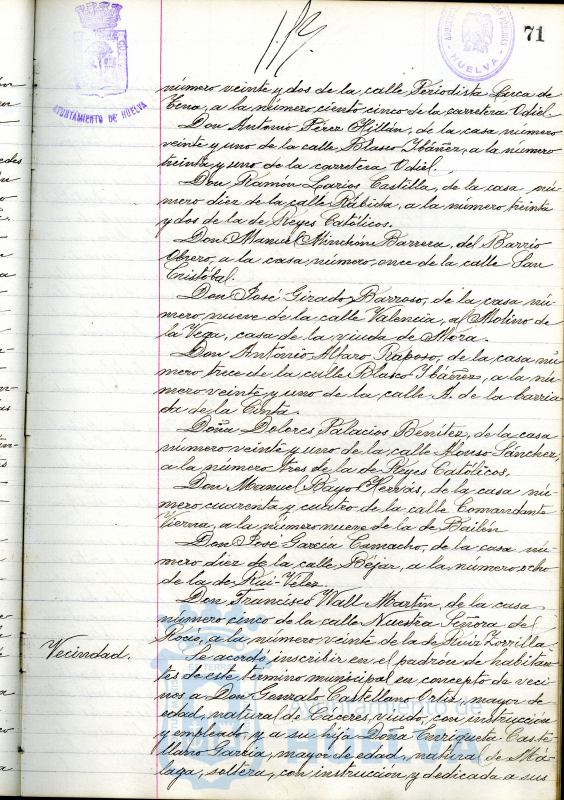 71
AYUNTAMIENTO DE HUELVA
HUELVA
número veinte y dos de la calle Periodista Luca de
Tena, a la número ciento cinco de la carretera Odiel.
Don Antonio Pérez Millán, de la casa número
veinte y uno de la calle Blasco Ibáñez, a la número
treinta y uno de la carretera Odiel.
Don Ramón Larios Castilla, de la casa nú-
mero diez de la calle Rábida, a la número treinta
y dos de la de Reyes Católicos.
Don Manuel Minchón Barrera, del Barrio
Obrero, a la casa número once de la calle San
Cristóbal.
Don José Girado Barroso, de la casa nú-
mero nueve de la calle Valencia, al Molino de
la Vega, casa de la viuda de Mora.
Don Antonio Alfaro Raposo, de la casa nú
mero trece de la calle Blasco Ibáñez, a la nú-
mero veinte y uno de la calle A. de la barria
da de la Cinta.
Doña Dolores Palacios Benítez, de la casa
número veinte y uno de la calle Alonso Sánchez,
a la número tres de la de Reyes Católicos.
Don Manuel Bayo Hervás, de la casa nú-
mero cuarenta y cuatro de la calle Comandante
Vierna, a la número nueve de la de Bailén
Don José García Camacho, de la casa nú-
mero diez de la calle Béjar, a la número ocho
de la de Rui-Vélez.
Don Francisco Wall Martín, de la casa
número cinco de la calle Nuestra Señora del
Rocío, a la número veinte de la de Ruiz Zorrilla.
Vecindad.
Se acordó inscribir en el padrón de habitan-
tes de este término municipal en concepto de veci-
nos a Don Gonzalo Castellano Ortiz, mayor de
edad, natural de Cáceres, viudo, con instrucción
y empleado, y a su hija Doña Enriqueta Caste-
llano García, mayor de edad, natural de Má-
laga, soltera, con instrucción y dedicada a sus
Ayuntamiento de
HUELVA